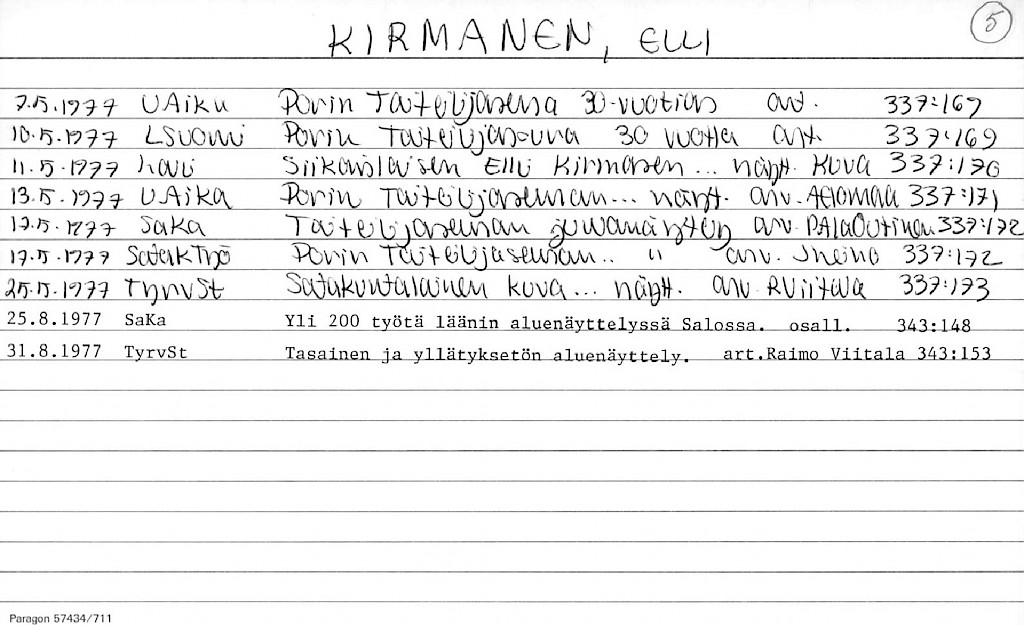 5
KIRMANEN, ELLI
7.5.1977 UAika Porin Taiteilijaseura 30-vuotias art. 337:169
10.5.1977 LSuomi Porin Taiteilijaseura 30 vuotta art. 337:169
11.5.1977 Siikaislaisen Elli Kirmasen... näytt. Kuva 337:170
13.5.1977 UAika Porin Taiteilijaseuran... näytt. arv. AEloMaa 337:171
17.5.1977 SaKa Taiteilijaseuran juhlanäyttely arv. 337:172
17.5.1977 SatakTyö Porin Taiteilijaseuran.. " arv. 337:172
25.5.1977 TyrvSt Satakuntalainen kuva... näytt. arv. RViitala 337:173
25.8.1977 SaKa Yli 200 työtä läänin aluenäyttelyssä Salossa. osall. 343:148
31.8.1977 TyrvSt Tasainen ja yllätyksetön aluenäyttely. art.Raimo Viitala 343:153
Paragon 57434/711